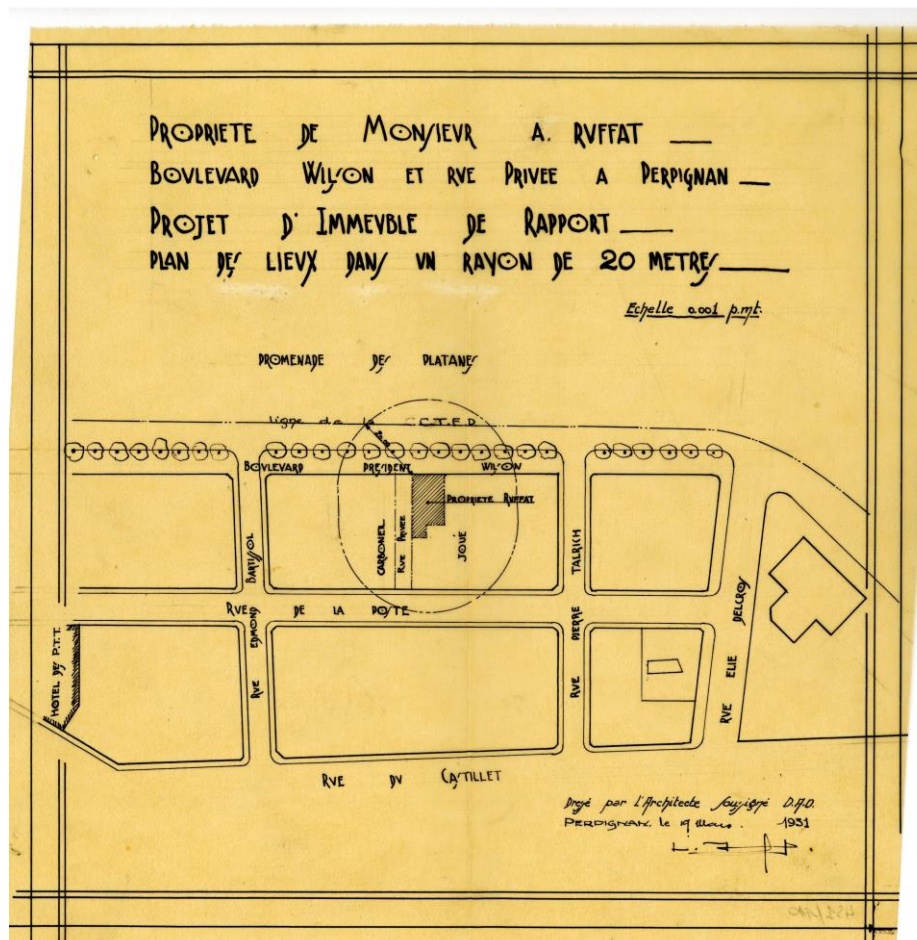 PROPRIETE DE MONSIEUR A. RUFFAT
BOULEVARD WILSON ET RUE PRIVEE A PERPIGNAN
PROJET D'IMMEUBLE DE RAPPORT
PLAN DES LIEUX DANS UN RAYON DE 20 METRES
Echelle 0.001 p.mt.
PROMENADE DES PLATANES
ligne de la C.T.F.P.
BOULEVARD PRESIDENT WILSON
PROPRIETE RUFFAT
CARBONEL
RUE PRIVEE
JOUE
RUE EDMOND BARTISSOL
RUE PIERRE TALRICH
RUE ELIE DELCROS
RUE DE LA POSTE
HOTEL DES P.T.T.
RUE DU CASTILLET
Dressé par l'Architecte soussigné D.P.D.
PERPIGNAN, le 19 Mars. 1931